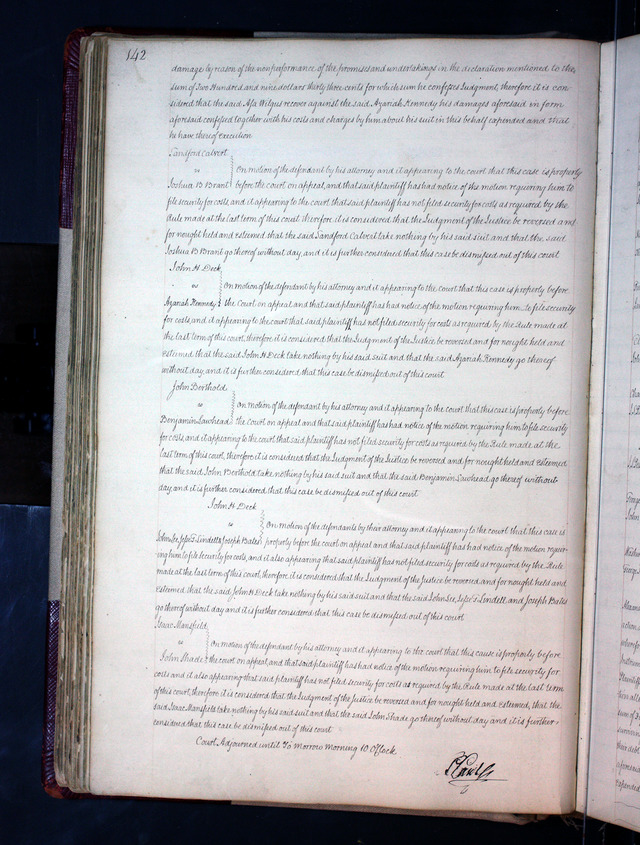 142
damage by reason of the nonperformance of the promises and undertakings in the declaration mentioned to the
sum of Two Hundred and nine dollars thirty three cents for which sum he confesses Judgment, therefore it is con-
sidered that the said Asa Wilgus recover against the said Azariah Kennedy his damages aforesaid in form
aforesaid confessed together with his costs and charges by him about his suit in this behalf expended and that
he have thereof execution
Sandford Calvert
vs On motion of the defendant by his attorney and it appearing to the court that this case is properly
Joshua B Brant before the court on appeal, and that said plaintiff has had notice of the motion requiring him to
file security for costs, and it appearing to the court that said plaintiff has not filed security for costs as required by the
Rule made at the last term of this court. Therefore it is considered that the Judgment of the Justice be reversed and
for nought held and esteemed that the said Sandford Calvert take nothing by his said suit and that the said
Joshua B Brant go thereof without day, and it is further considered that this case be dismissed out of this court
John H Deck
vs On motion of the defendant by his attorney and it appearing to the court that this case is properly before
Azariah Kennedy the Court on appeal and that said plaintiff has had notice of the motion requiring him to file security
for costs, and it appearing to the court that said plaintiff has not filed security for costs as required by the Rule made at
the last term of this court, therefore it is considered that the Judgment of the Justice be reversed and for nought held and
esteemed that the said John H Deck take nothing by his said suit and that the said Azariah Kennedy go thereof
without day, and it is further considered that this case be dismissed out of this court
John Berthold
vs On motion of the defendant by his attorney and it appearing to the court that this case is properly before
Benjamin Lawhead the court on appeal and that said plaintiff has had notice of the motion requiring him to file security
for costs, and it appearing to the court that said plaintiff has not filed security for costs as required by the Rule made at the
last term of this court, therefore it is considered that the Judgment of the Justice be reversed and for nought held and esteemed
that the said John Berthold take nothing by his said suit and that the said Benjamin Lawhead go thereof without
day, and it is further considered that this case be dismissed out of this court
John H Deck
vs On motion of the defendants by their attorney and it appearing to the court that this case is
John Lee, Jesse G Lindell & Joseph Bates properly before the court on appeal and that said plaintiff has had notice of the motion requir-
ing him to file security for costs, and it also appearing that said plaintiff has not filed security for costs as required by the Rule
made at the last term of this court, therefore, it is considered that the Judgment of the Justice be reversed and for nought held and
esteemed that the said John H Deck take nothing by his said suit and that the said John Lee, Jesse G Lindell and Joseph Bates
go thereof without day and it is further considered that this case be dismissed out of this court
Isaac Mansfield
vs On motion of the defendant by his attorney and it appearing to the court that this cause is properly before
John Shade the court on appeal, and that said plaintiff has had notice of the motion requiring him to file security for
costs and it also appearing that said plaintiff has not filed security for costs as required by the Rule made at the last term
of this court, therefore it is considered that the Judgment of the Justice be reversed and for nought held and esteemed, that the
said Isaac Mansfield take nothing by his said suit and that the said John Shade go thereof without day and it is further
considered that this case be dismissed out of this court
Court Adjourned until To Morrow Morning 10 O'Clock